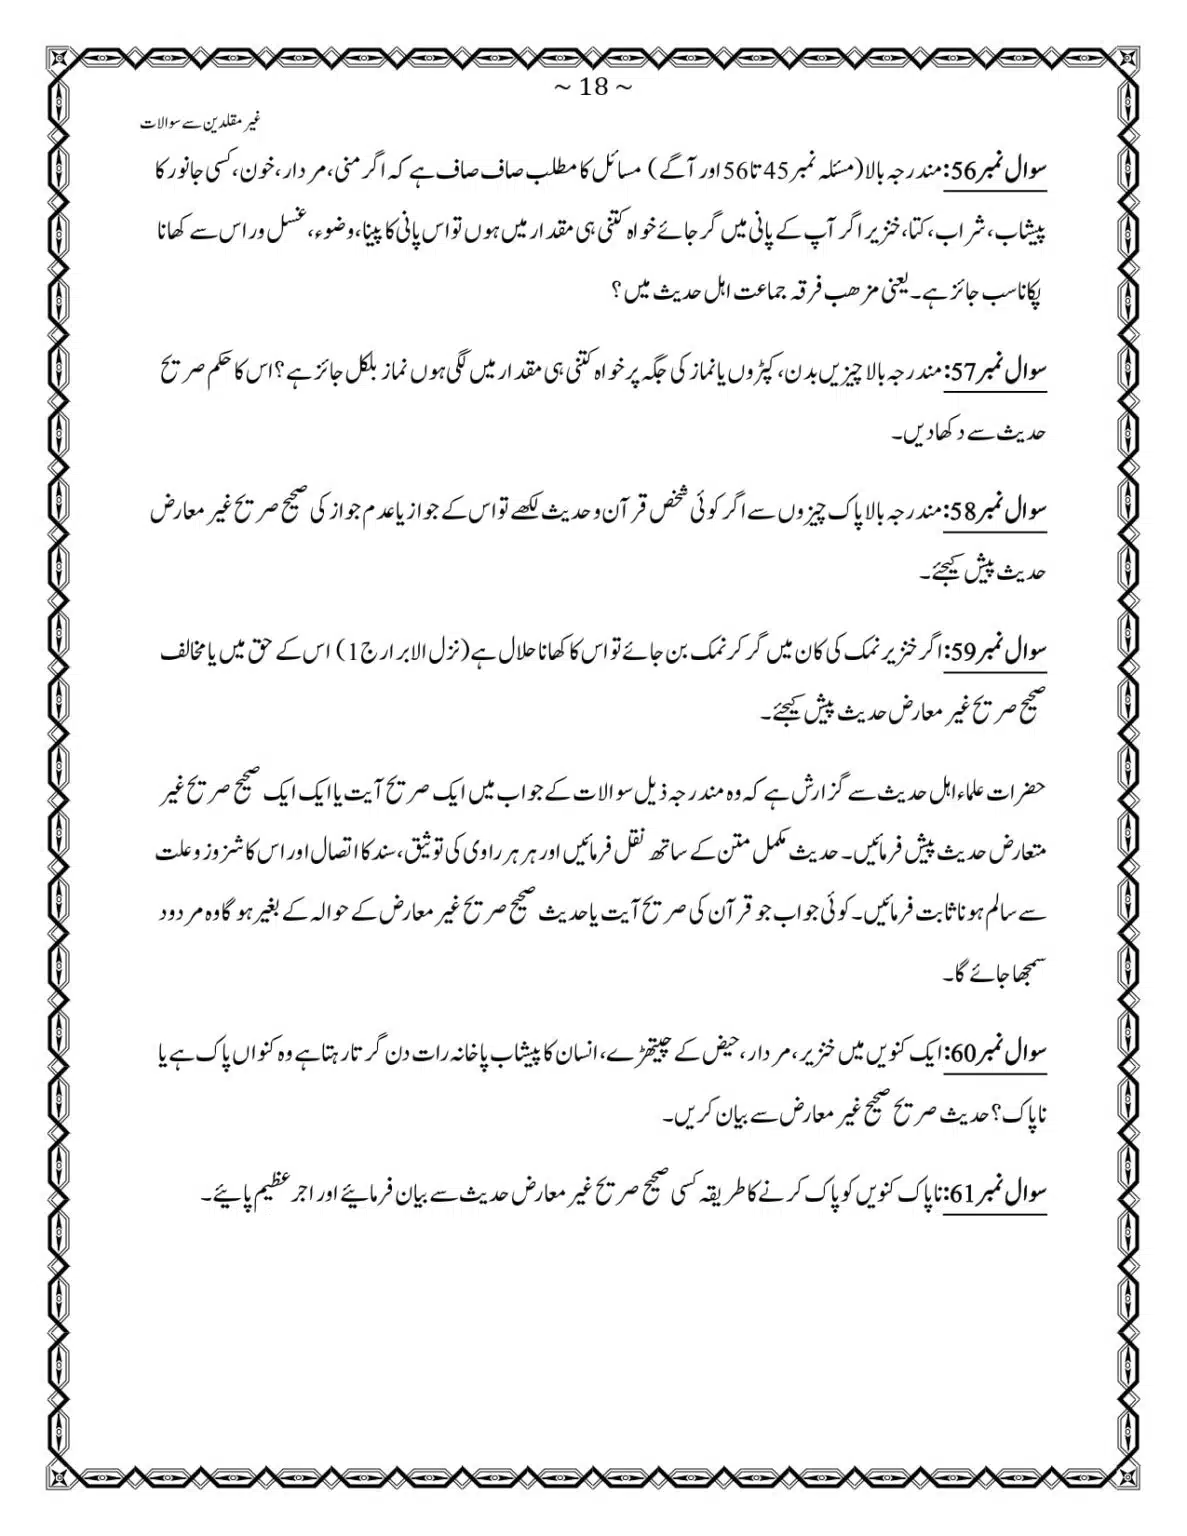 ~ 18 ~
غیر مقلدین سے سوالات
سوال نمبر56: مندرجہ بالا(مسئلہ نمبر45تا56اور آگے) مسائل کا مطلب صاف صاف ہے کہ اگر منی،مردار،خون،کسی جانور کا
پیشاب،شراب،کتا،خنزیر اگر آپ کے پانی میں گر جائے خواہ کتنی ہی مقدار میں ہوں تواس پانی کا پینا،وضوء،غسل وراس سے کھانا
پکاناسب جائز ہے۔یعنی مزھب فرقہ جماعت اہل حدیث میں؟
سوال نمبر57: مندرجہ بالا چیزیں بدن،کپڑوں یانماز کی جگہ پر خواہ کتنی ہی مقدار میں لگی ہوں نماز بلکل جائز ہے؟اس کا حکم صریح
حدیث سے دکھادیں۔
سوال نمبر58: مندرجہ بالا پاک چیزوں سے اگر کوئی شخص قرآن وحدیث لکھے تواس کے جواز یاعدم جواز کی صحیح صریح غیر معارض
حدیث پیش کیجئے۔
سوال نمبر59: اگر خنزیر نمک کی کان میں گر کر نمک بن جائے تواس کا کھانا حلال ہے(نزل الابرار ج1) اس کے حق میں یا مخالف
صحیح صریح غیر معارض حدیث پیش کیجئے۔
حضرات علماء اہل حدیث سے گزارش ہے کہ وہ مندرجہ ذیل سوالات کے جواب میں ایک صریح آیت یا ایک ایک صحیح صریح غیر
متعارض حدیث پیش فرمائیں۔حدیث مکمل متن کے ساتھ نقل فرمائیں اور ہر ہر راوی کی توثیق،سند کا اتصال اور اس کا شزوز وعلت
سے سالم ہونا ثابت فرمائیں۔کوئی جواب جو قرآن کی صریح آیت یا حدیث صحیح صریح غیر معارض کے حوالہ کے بغیر ہو گا وہ مردود
سمجھا جائے گا۔
سوال نمبر60: ایک کنویں میں خنزیر،مردار،حیض کے چیتھڑے،انسان کا پیشاب پاخانہ رات دن گرتا رہتا ہے وہ کنواں پاک ہے یا
ناپاک؟حدیث صریح صحیح غیر معارض سے بیان کریں۔
سوال نمبر61: ناپاک کنویں کو پاک کرنے کا طریقہ کسی صحیح صریح غیر معارض حدیث سے بیان فرمائیے اور اجر عظیم پایئے۔